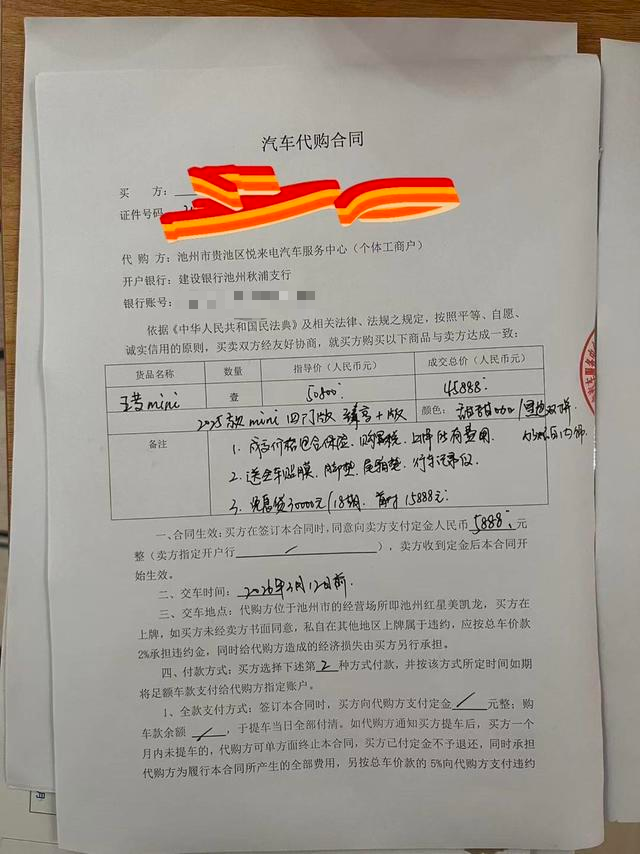 汽车代购合同
买 方:
证件号码:
代 购 方:池州市贵池区悦来电汽车服务中心(个体工商户)
开户银行:建设银行池州秋浦支行
银行账号:
依据《中华人民共和国民法典》及相关法律、法规之规定,按照平等、自愿、
诚实信用的原则,买卖双方经友好协商,就买方购买以下商品与卖方达成一致:
货品名称 数量 指导价(人民币元) 成交总价(人民币元)
mini 壹 50800 45888
2025款 mini 四门版 版 颜色:
备注 1. 成交价格包含保险、购置税、上牌所有费用
2. 送全车贴膜、脚垫、尾箱垫、行车记录仪
3. 免息贷30000元/18期、首付15888元
一、合同生效:买方在签订本合同时,同意向卖方支付定金人民币 5888 元
整(卖方指定开户行 / ),卖方收到定金后本合同开
始生效。
二、交车时间:2026年3月12日前.
三、交车地点:代购方位于池州市的经营场所即池州红星美凯龙,买方在
上牌,如买方未经卖方书面同意,私自在其他地区上牌属于违约,应按总车价款
2%承担违约金,同时给代购方造成的经济损失由买方另行承担。
四、付款方式:买方选择下述第 2 种方式付款,并按该方式所定时间如期
将足额车款支付给代购方指定账户。
1、全款支付方式:签订本合同时,买方向代购方支付定金 / 元整;购
车款余额 / ,于提车当日全部付清。如代购方通知买方提车后,买方一个
月内未提车的,代购方可单方面终止本合同,买方已付定金不予退还,同时承担
代购方为履行本合同所产生的全部费用,另按总车价款的 5%向代购方支付违约